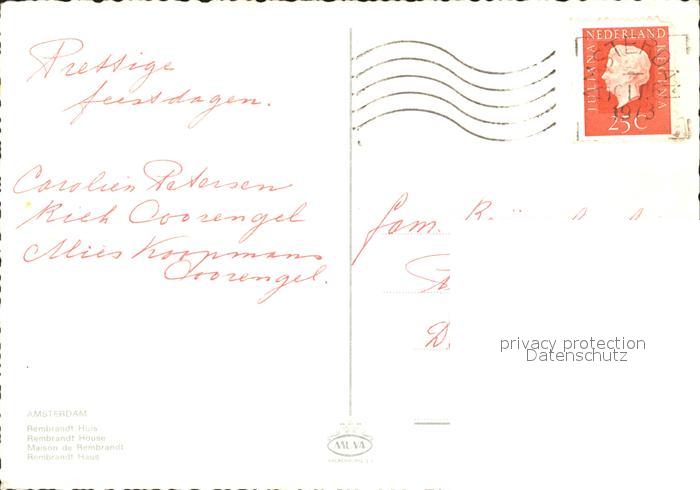 Prettige
feestdagen.
Carolien Petersen
Riek Coorengel
Mies Koopmans
Coorengel.
Fam.
NEDERLAND
JULIANA REGINA
AMSTERDAM
1973
25C
privacy protection
Datenschutz
AMSTERDAM
Rembrandt Huis
Rembrandt House
Maison de Rembrandt
Rembrandt Haus